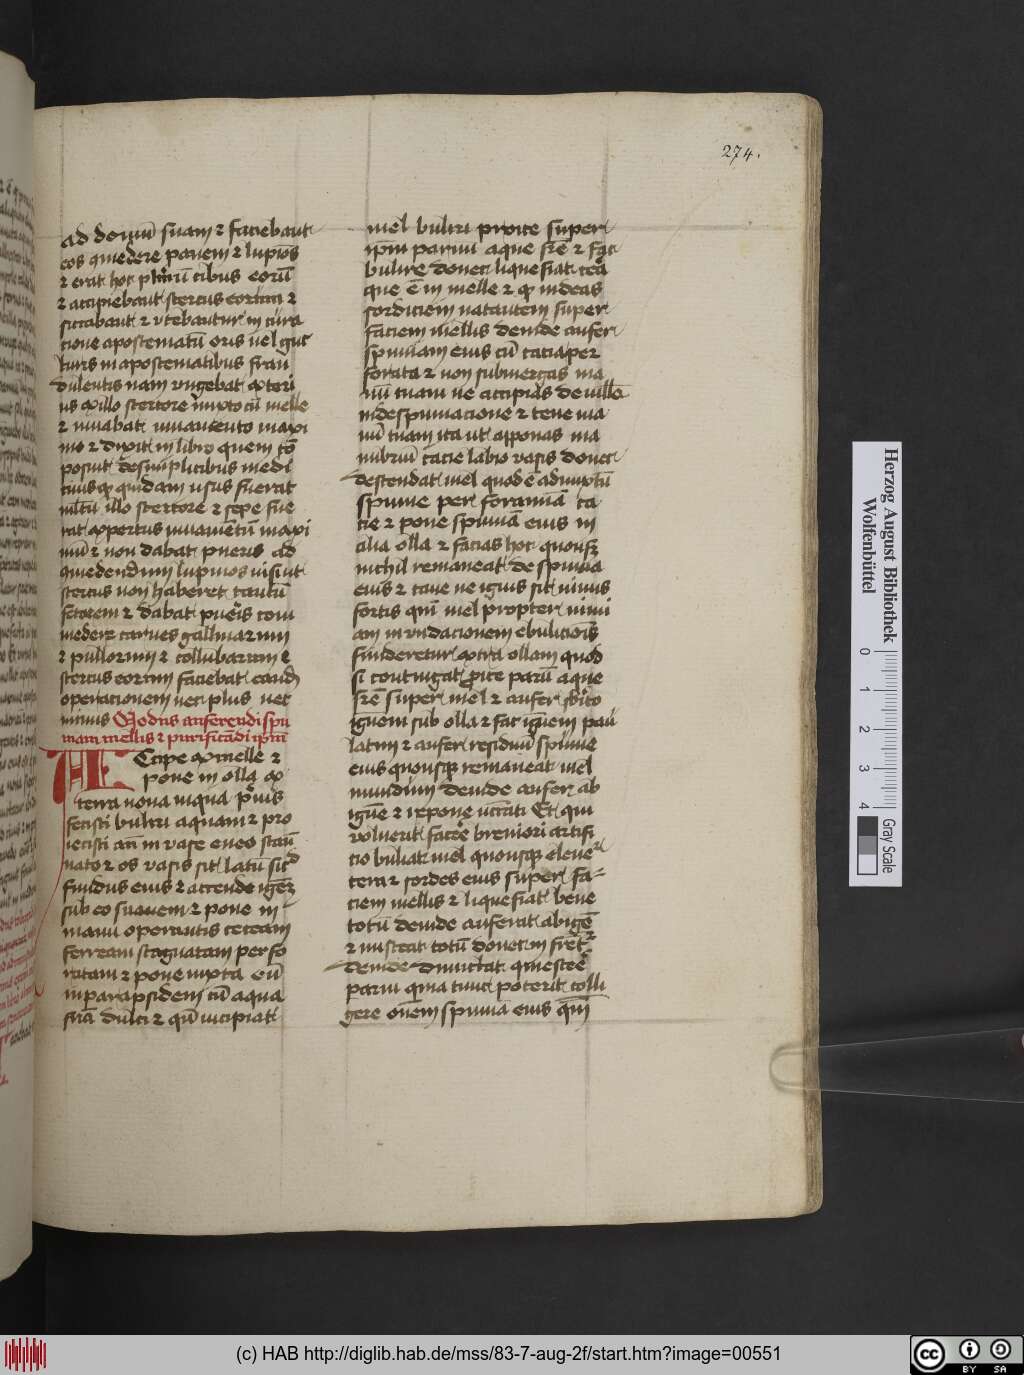 274.
ad domū suam ⁊ faciebant
eos quiedere panem ⁊ lupīos
⁊ erat hoc plurimū cibus eorū
⁊ accipiebant stercus eorum ⁊
siccabant ⁊ vtebantur in cura
cione apostematū oris uel gut
turis in apostematibus frau
dulentis nam vngebat exteri
us ex illo stercore mixto cū melle
⁊ iuuabat iuuamento maxi
mo ⁊ dixit in libro quem cō
posuit de simplicibus medi
cinis qꝫ quidam usus fuerat
mltū illo stercore ⁊ sepe fue
rat expertus iuuamētū maxi
mū ⁊ non dabat pueris ad
quiedendum lupinos nisi ut
stercus non haberet tantū
fetorem ⁊ dabat pueris com
medere carnes gallinarum
⁊ pullorum ⁊ collubarum ⁊
stercus eorum faciebat eandē
operacionem nec plus nec
minus Modus auferendi spu
mam mellis ⁊ purificādi ipm̄
Accipe ex melle ⁊
pone in olla ex
terra noua in qua prius
fecisti bulliri aquam ⁊ pro
iecisti an in vase eneo stāū
nato ⁊ os vasis sit latū sicd
fundus eius ⁊ accende ignē
sub eo suauem ⁊ pone in
manu operantis coccam
ferream stagnatam perfo
ratam ⁊ pone iuxta eū
in parapsidem cū aqua
fīcā dulci ⁊ qn̄ incipiat
mel buliri proice super
ipm parum aque frē ⁊ fac
bulire donec liquefiat cera
que ē in melle ⁊ qn̄ uideas
sordiciem natantem super
faciem mellis deinde aufer
spumam eius cū cacia per
forata ⁊ non submergas ma
nū tuam ne accipias de mille
in despumacione ⁊ tene ma
nū tuam ita ut apponas ma
nubriū cacie labio vasis donec
descendat mel quod ē admixtū
spume per foramina ca
cie ⁊ pone spumā eius in
alia olla ⁊ facias hoc quousqꝫ
nichil remaneat de spuma
eius ⁊ caue ne ignis sit nimis
fortis qm̄ mel propter nimi
am inundacionem ebulicionis
funderetur extra ollam quod
si contingat proice parū aque
frē super mel ⁊ aufer sbito
ignem sub olla ⁊ fac ignem pau
latim ⁊ aufer residuū spume
eius quousqꝫ remaneat mel
mundum deinde aufer ab
igne ⁊ repone uti Et qui
voluerit facere breuiori artifi
cio buliat mel quousqꝫ eleue
tera ⁊ sordes eius super fa-
ciem mellis ⁊ liquefiat bene
totū deinde auferat ab igne
⁊ misceat totū donec infret
deinde dimictat quiescere
parū quia tunc poterit colli
gere omnem spuma eius qm̄
Herzog August Bibliothek
Wolfenbüttel
0 1 2 3 4
Gray Scale
(c) HAB http://diglib.hab.de/mss/83-7-aug-2f/start.htm?image=00551
cc BY SA